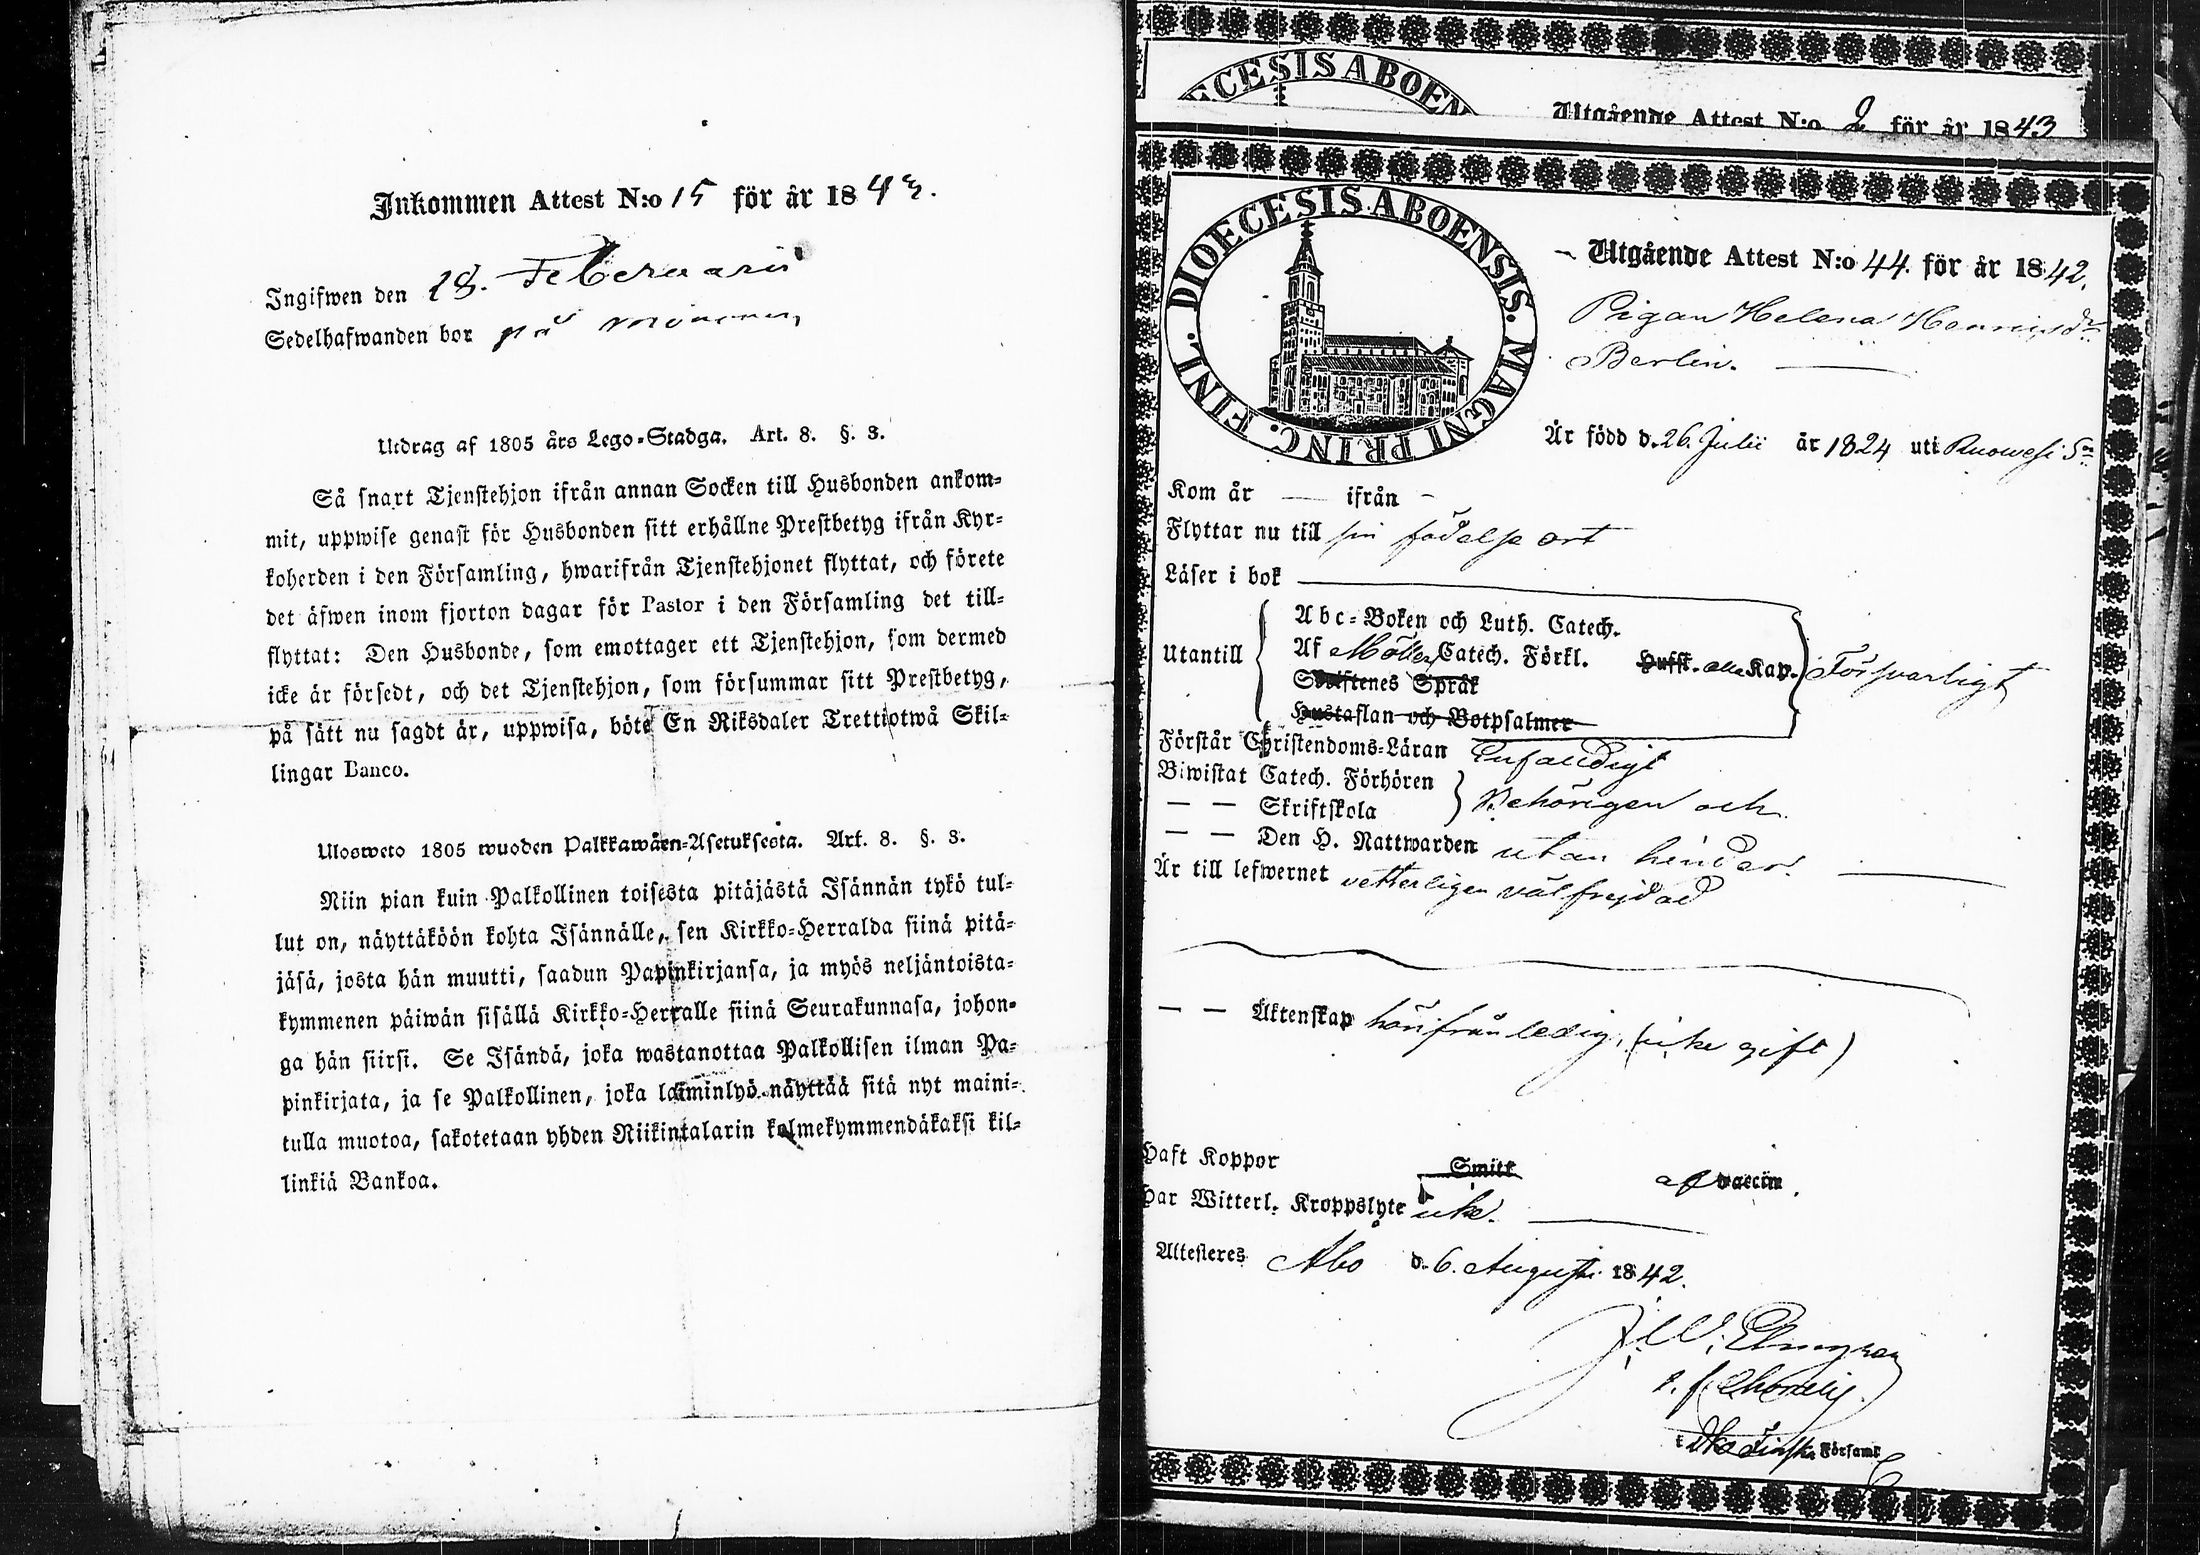 Inkommen Attest N:o 15 för år 1843.
Ingifwen den 28. Februarii
Sedelhafwanden bor på
Utdrag af 1805 års Lego-Stadga. Art. 8. §. 3.
Så snart Tjenstehjon ifrån annan Socken till Husbonden ankom-
mit, uppwise genast för Husbonden sitt erhållne Prestbetyg ifrån Kyr-
koherden i den Församling, hwarifrån Tjenstehjonet flyttat, och förete
det äfwen inom fjorton dagar för Pastor i den Församling det till-
flyttat: Den Husbonde, som emottager ett Tjenstehjon, som dermed
icke är försedt, och det Tjenstehjon, som försummar sitt Prestbetyg,
på sätt nu sagdt är, uppwisa, böte En Riksdaler Trettiotwå Skil-
lingar Banco.
Ulosweto 1805 wuoden Palkkawäen-Asetuksesta. Art. 8. §. 3.
Niin pian kuin Palkollinen toisesta pitäjästä Isännän tykö tul-
lut on, näyttäköön kohta Isännälle, sen Kirkko-Herralda siinä pitä-
jäsä, josta hän muutti, saadun Papinkirjansa, ja myös neljäntoista-
kymmenen päiwän sisällä Kirkko-Herralle siinä Seurakunnasa, johon-
ga hän siirsi. Se Isändä, joka wastanottaa Palkollisen ilman Pa-
pinkirjata, ja se Palkollinen, joka laiminlyö näyttää sitä nyt maini-
tulla muotoa, sakotetaan yhden Riikintalarin kolmekymmendäkaksi kil-
linkiä Bankoa.
ECESIS ABOEN
Utgående Attest N:o 2 för år 1843
DIOECESIS ABOENSIS. MAGNI PRINC. FINL.
Utgående Attest N:o 44. för år 1842.
Pigan Helena Henricsdr
Berlin.
Är född d. 26. Julii år 1824 uti Ruowesi Sn
Kom år — ifrån —
Flyttar nu till sin födelse ort
Läser i bok
Utantill
Abc-Boken och Luth. Catech.
Af Möllers Catech. Förkl. Hufst. alla Kap.
Skriftenes Språk
Hustaflan och Botpsalmer
Försvarligt
Förstår Christendoms-Läran Enfaldigt
Biwistat Catech. Förhören
— — Skriftskola
Behörigen och
— — Den H. Nattwarden utan hinder.
Är till lefwernet vetterligen välfrejdad
— — Äktenskap härifrån ledig, (icke gift)
Haft Koppor Smitt af vaccin.
Har Witterl. Kroppslyte icke.
Attesteres Åbo d. 6. Augusti 1842.
J. W. Elmgren
i Åbo Finska Församl